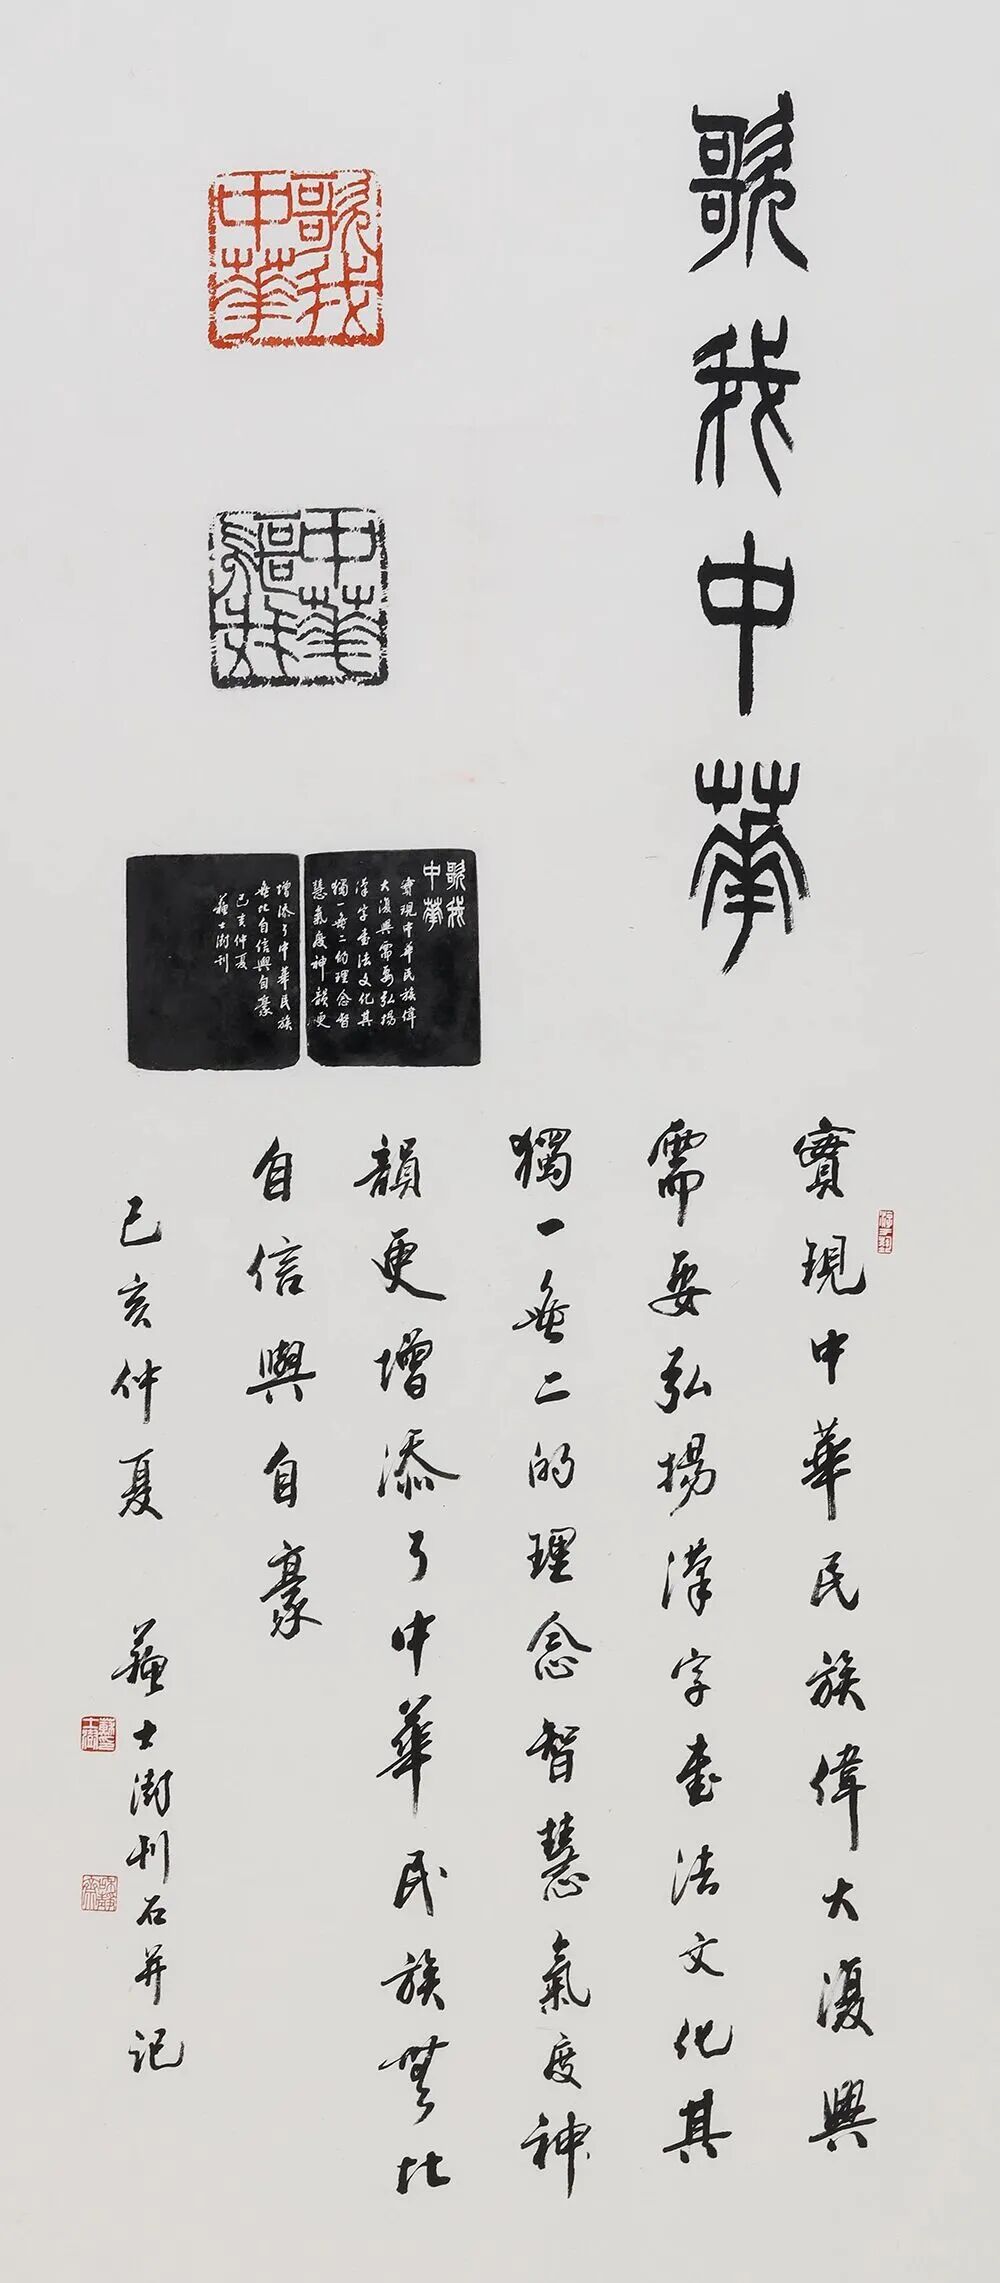 歌我中華
歌我中華
實現中華民族偉
大復興需要弘揚
漢字書法文化其
獨一無二的理念智
慧氣度神韻更
增添了中華民族
無比自信與自豪
己亥仲夏
蘇士澍刊
實現中華民族偉大復興
需要弘揚漢字書法文化其
獨一無二的理念智慧氣度神
韻更增添了中華民族無比
自信與自豪
己亥仲夏 蘇士澍刊石并記
歌我
中華